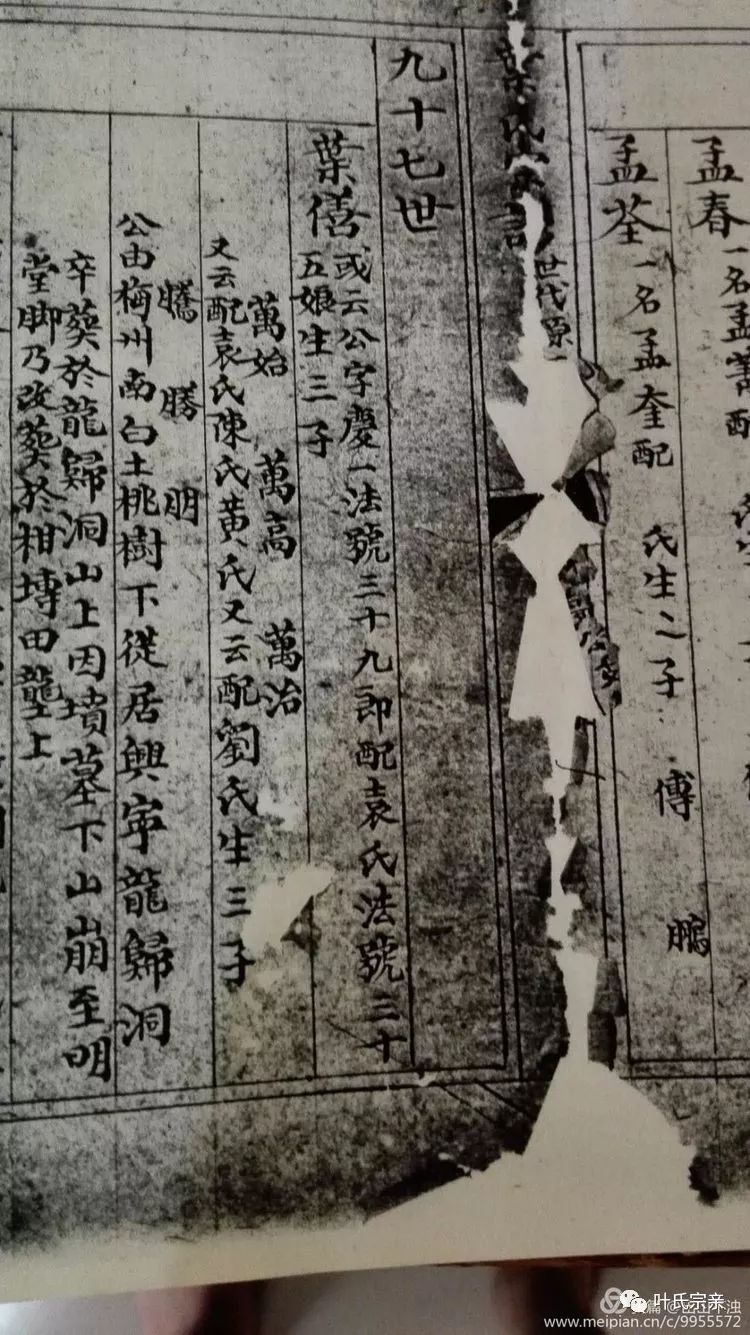 孟春一名孟菁配 氏生
孟荃一名孟奎配 氏生二子 傅 鵬
葉氏宗譜 世代源
九十七世
葉僐或云公字慶一法號三十九郎配袁氏法號三十
五娘生三子
萬始 萬高 萬治
又云配袁氏陳氏黃氏又云配劉氏生三子
騰 勝 明
公由梅州南口土桃樹下從居興寧龍歸洞
卒葬於龍歸洞山上因墳墓下山崩至明
堂脚乃改葬於柑塼田壟上
叶氏宗亲
www.meipian.cn/c/9955572